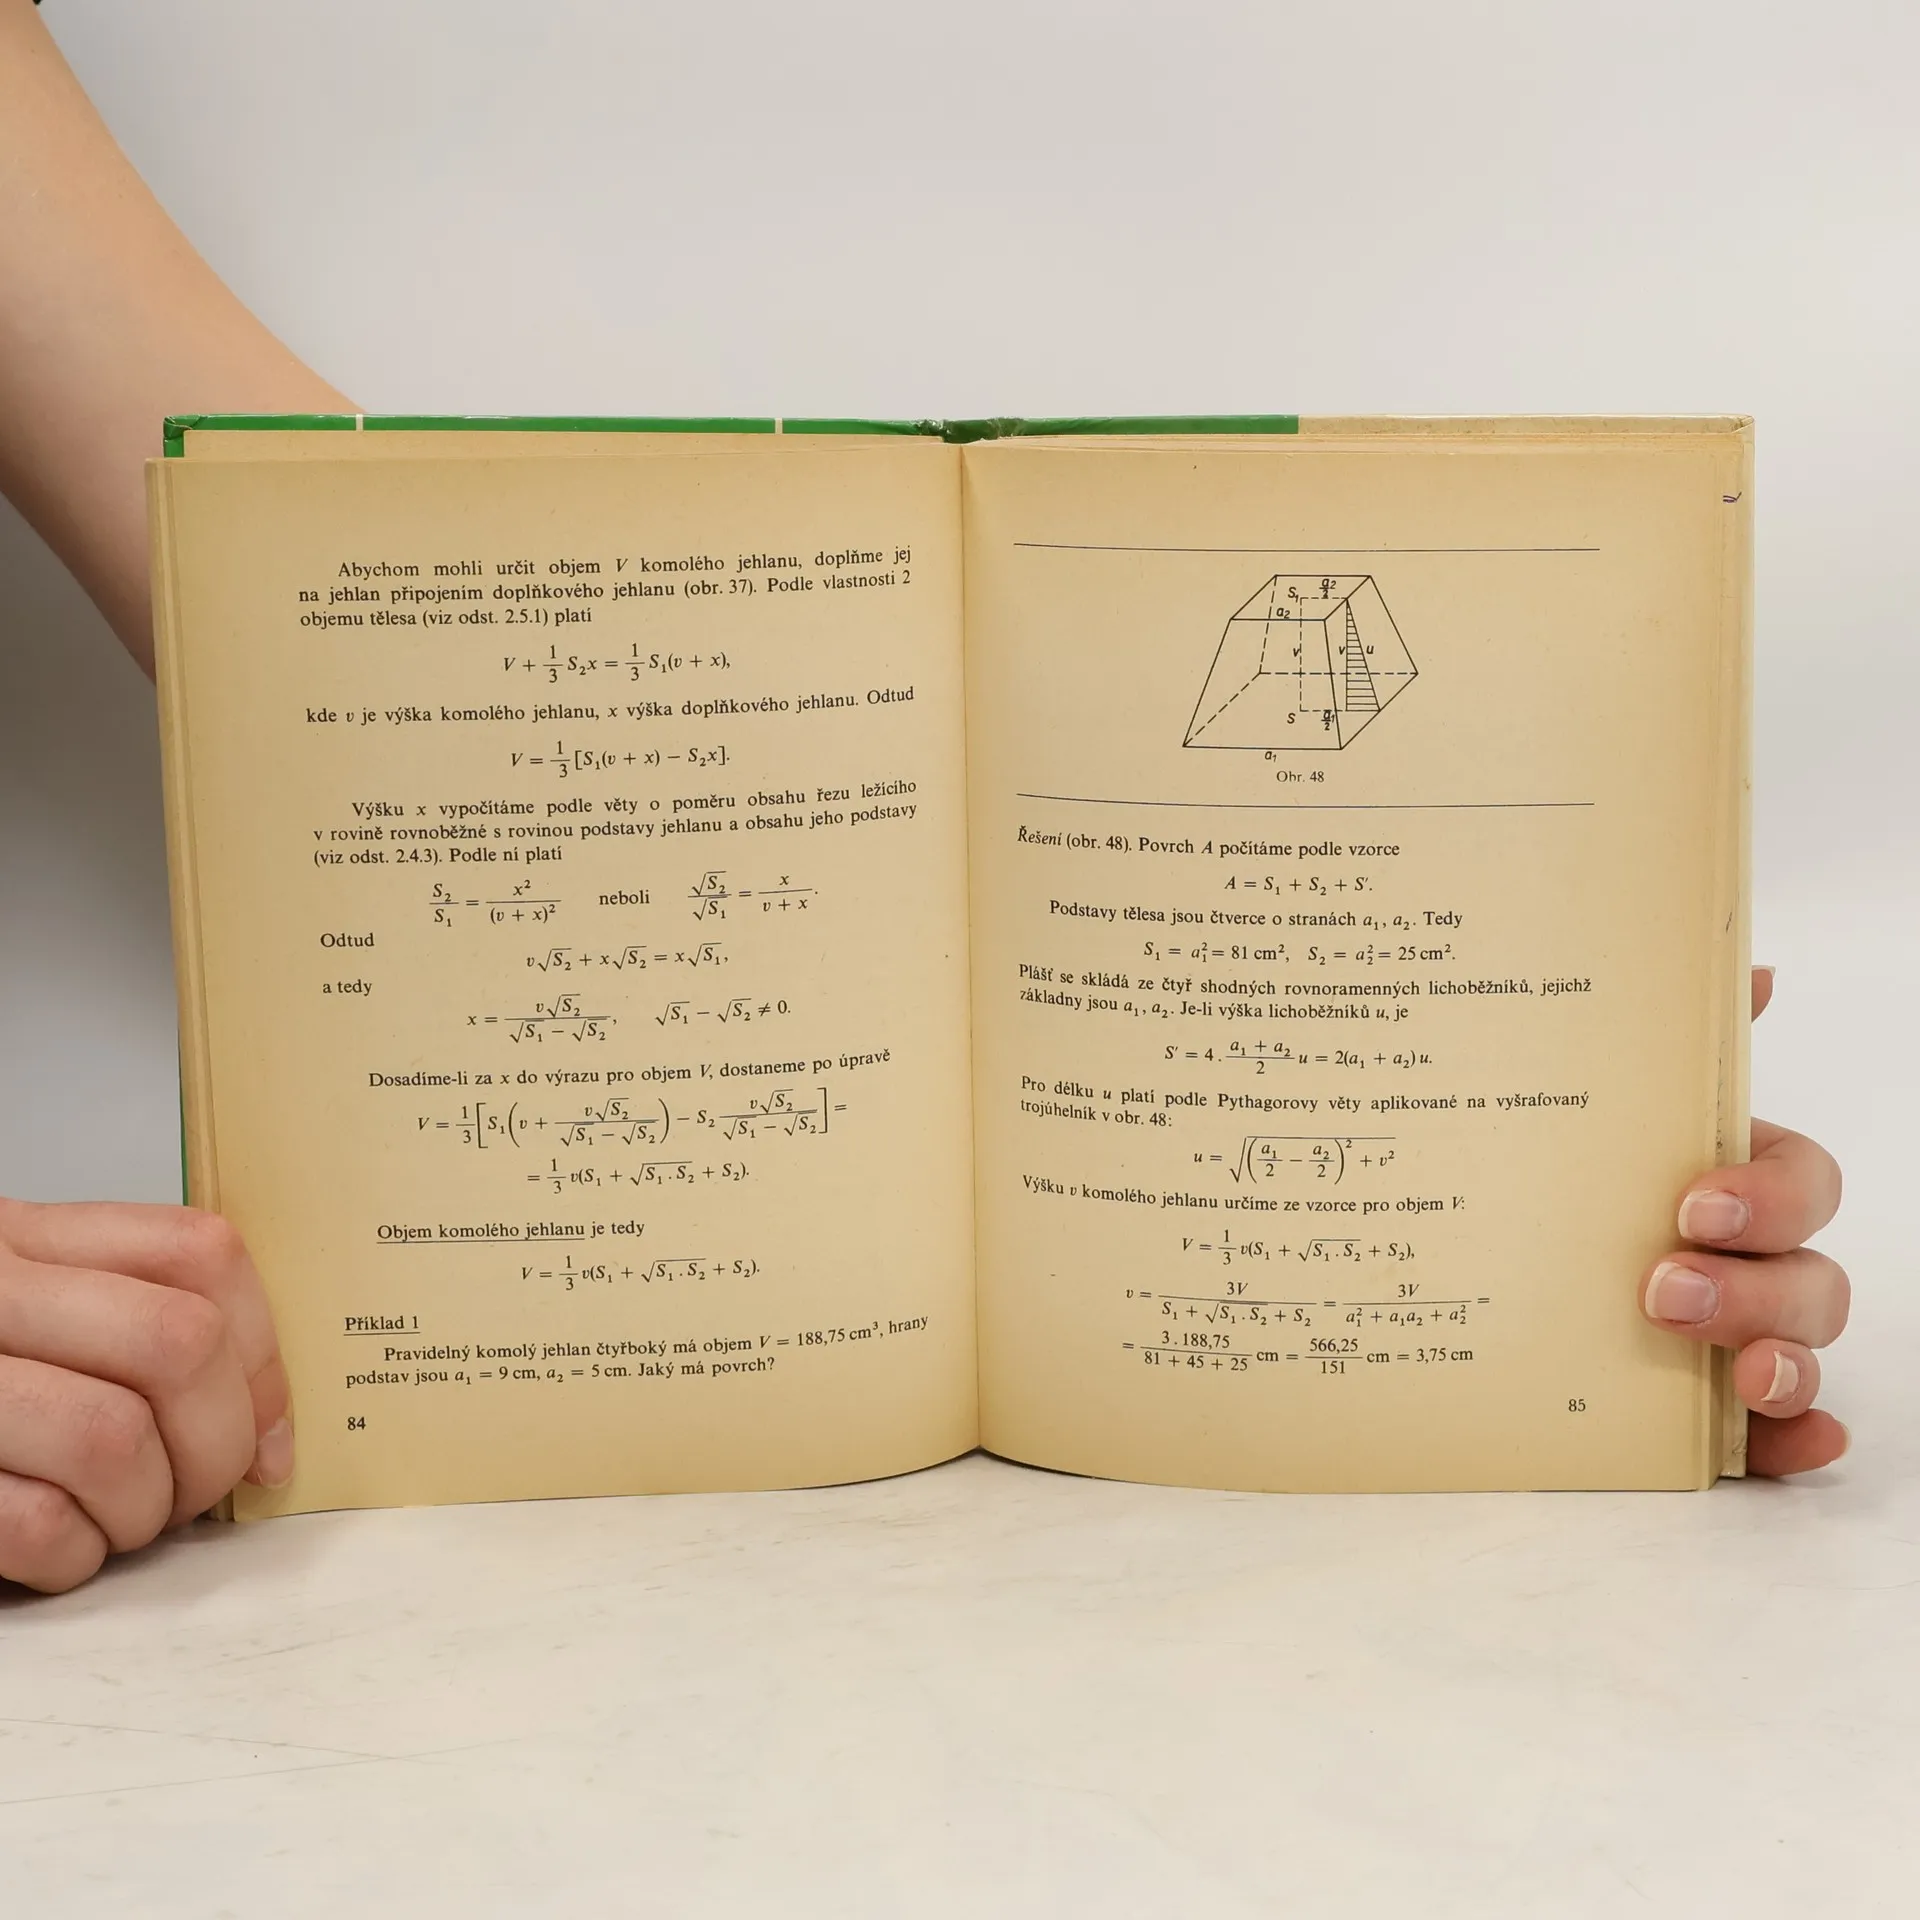 Abychom mohli určit objem V komolého jehlanu, doplňme jej
na jehlan připojením doplňkového jehlanu (obr. 37). Podle vlastnosti 2
objemu tělesa (viz odst. 2.5.1) platí
V + 1/3 S₂x = 1/3 S₁(v + x),
kde v je výška komolého jehlanu, x výška doplňkového jehlanu. Odtud
V = 1/3 [S₁(v + x) − S₂x].
Výšku x vypočítáme podle věty o poměru obsahu řezu ležícího
v rovině rovnoběžné s rovinou podstavy jehlanu a obsahu jeho podstavy
(viz odst. 2.4.3). Podle ní platí
S₂/S₁ = x²/(v + x)² neboli √S₂/√S₁ = x/(v + x).
Odtud
v√S₂ + x√S₂ = x√S₁,
a tedy
x = v√S₂/(√S₁ − √S₂), √S₁ − √S₂ ≠ 0.
Dosadíme-li za x do výrazu pro objem V, dostaneme po úpravě
V = 1/3 [S₁(v + v√S₂/(√S₁ − √S₂)) − S₂ v√S₂/(√S₁ − √S₂)] =
= 1/3 v(S₁ + √(S₁ . S₂) + S₂).
Objem komolého jehlanu je tedy
V = 1/3 v(S₁ + √(S₁ . S₂) + S₂).
Příklad 1
Pravidelný komolý jehlan čtyřboký má objem V = 188,75 cm³, hrany
podstav jsou a₁ = 9 cm, a₂ = 5 cm. Jaký má povrch?
84
S₁ a₂/2
a₂
v v u
S a₁/2
a₁
Obr. 48
Řešení (obr. 48). Povrch A počítáme podle vzorce
A = S₁ + S₂ + S′.
Podstavy tělesa jsou čtverce o stranách a₁, a₂. Tedy
S₁ = a₁² = 81 cm², S₂ = a₂² = 25 cm².
Plášť se skládá ze čtyř shodných rovnoramenných lichoběžníků, jejichž
základny jsou a₁, a₂. Je-li výška lichoběžníků u, je
S′ = 4 . (a₁ + a₂)/2 u = 2(a₁ + a₂) u.
Pro délku u platí podle Pythagorovy věty aplikované na vyšrafovaný
trojúhelník v obr. 48:
u = √((a₁/2 − a₂/2)² + v²)
Výšku v komolého jehlanu určíme ze vzorce pro objem V:
V = 1/3 v(S₁ + √(S₁ . S₂) + S₂),
v = 3V/(S₁ + √(S₁ . S₂) + S₂) = 3V/(a₁² + a₁a₂ + a₂²) =
= 3 . 188,75/(81 + 45 + 25) cm = 566,25/151 cm = 3,75 cm
85